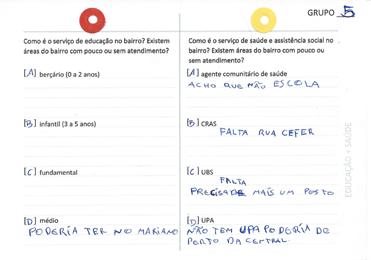 GRUPO 5
Como é o serviço de educação no bairro? Existem
áreas do bairro com pouco ou sem atendimento?
[A] berçário (0 a 2 anos)
[B] infantil (3 a 5 anos)
[C] fundamental
[D] médio
PODERIA TER NO MARIANO
Como é o serviço de saúde e assistência social no
bairro? Existem áreas do bairro com pouco ou
sem atendimento?
[A] agente comunitário de saúde
ACHO QUE NÃO ESCOLA
[B] CRAS
FALTA RUA CEFER
[C] UBS
FALTA
PRECISA DE MAIS UM POSTO
[D] UPA
NÃO TEM UPA PODERIA DE
PORTO DA CENTRAL.
EDUCAÇÃO + SAÚDE